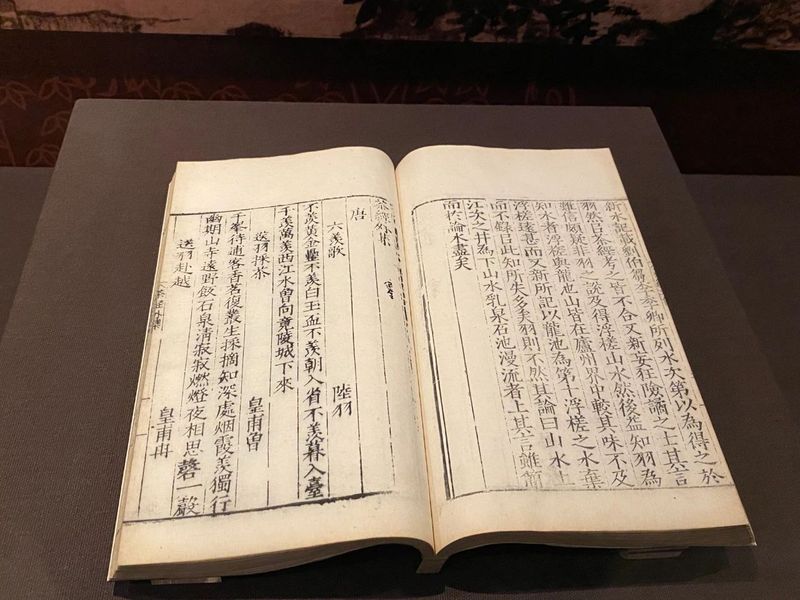 新水記載劉伯芻李季卿所列水次第以為得之於
羽然以茶經考之皆不合又新妄狂險譎之士其言
難信頗疑非羽之說及得浮槎山水然後益知羽為
知水者浮槎與龍池山皆在廬州界中較其味不及
浮槎遠甚而又新所記以龍池為第十浮槎之水棄
而不錄以此知所失多矣羽則不然其論曰山水上
江次之井為下山水乳泉石池漫流者上其言雖簡
而於論水盡矣
茶經外集
唐
六羨歌 陸羽
不羨黃金罍不羨白玉盃不羨朝入省不羨暮入臺
千羨萬羨西江水曾向竟陵城下來
送羽採茶 皇甫曾
千峯待逋客香茗復叢生採摘知深處烟霞羨獨行
幽期山寺遠野飯石泉清寂寂燃燈夜相思磬一聲
送羽赴越 皇甫冉
茶經外集